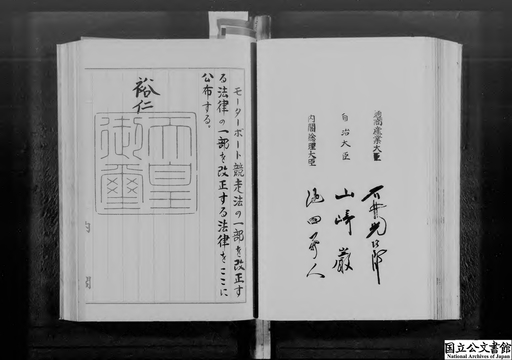 通商産業大臣 石井光次郎
自治大臣 山崎巌
内閣総理大臣 池田勇人
モーターボート競走法の一部を改正す
る法律の一部を改正する法律をここに
公布する。
裕仁
天皇
御璽
国立公文書館
National Archives of Japan